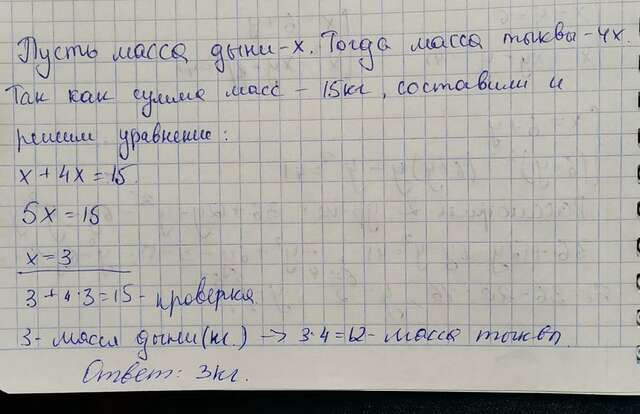 Пусть масса дыни - x. Тогда масса тыквы - 4x.
Так как сумма масс - 15кг, составим и
решим уравнение:
x + 4x = 15
5x = 15
x = 3
3 + 4·3 = 15 - проверка
3 - масса дыни (кг.) -> 3·4 = 12 - масса тыквы.
Ответ: 3кг.